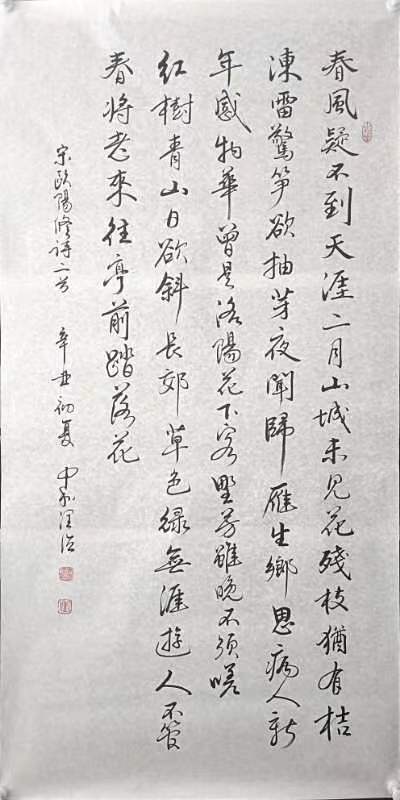 春風疑不到天涯二月山城未見花殘枝猶有桔
凍雷驚笋欲抽芽夜聞歸雁生鄉思病人新
年感物華曾是洛陽花下客野芳雖晚不須嗟
紅樹青山日欲斜長郊草色綠無涯遊人不管
春將老來往亭前踏落花
宋歐陽修詩二首 辛丑初夏